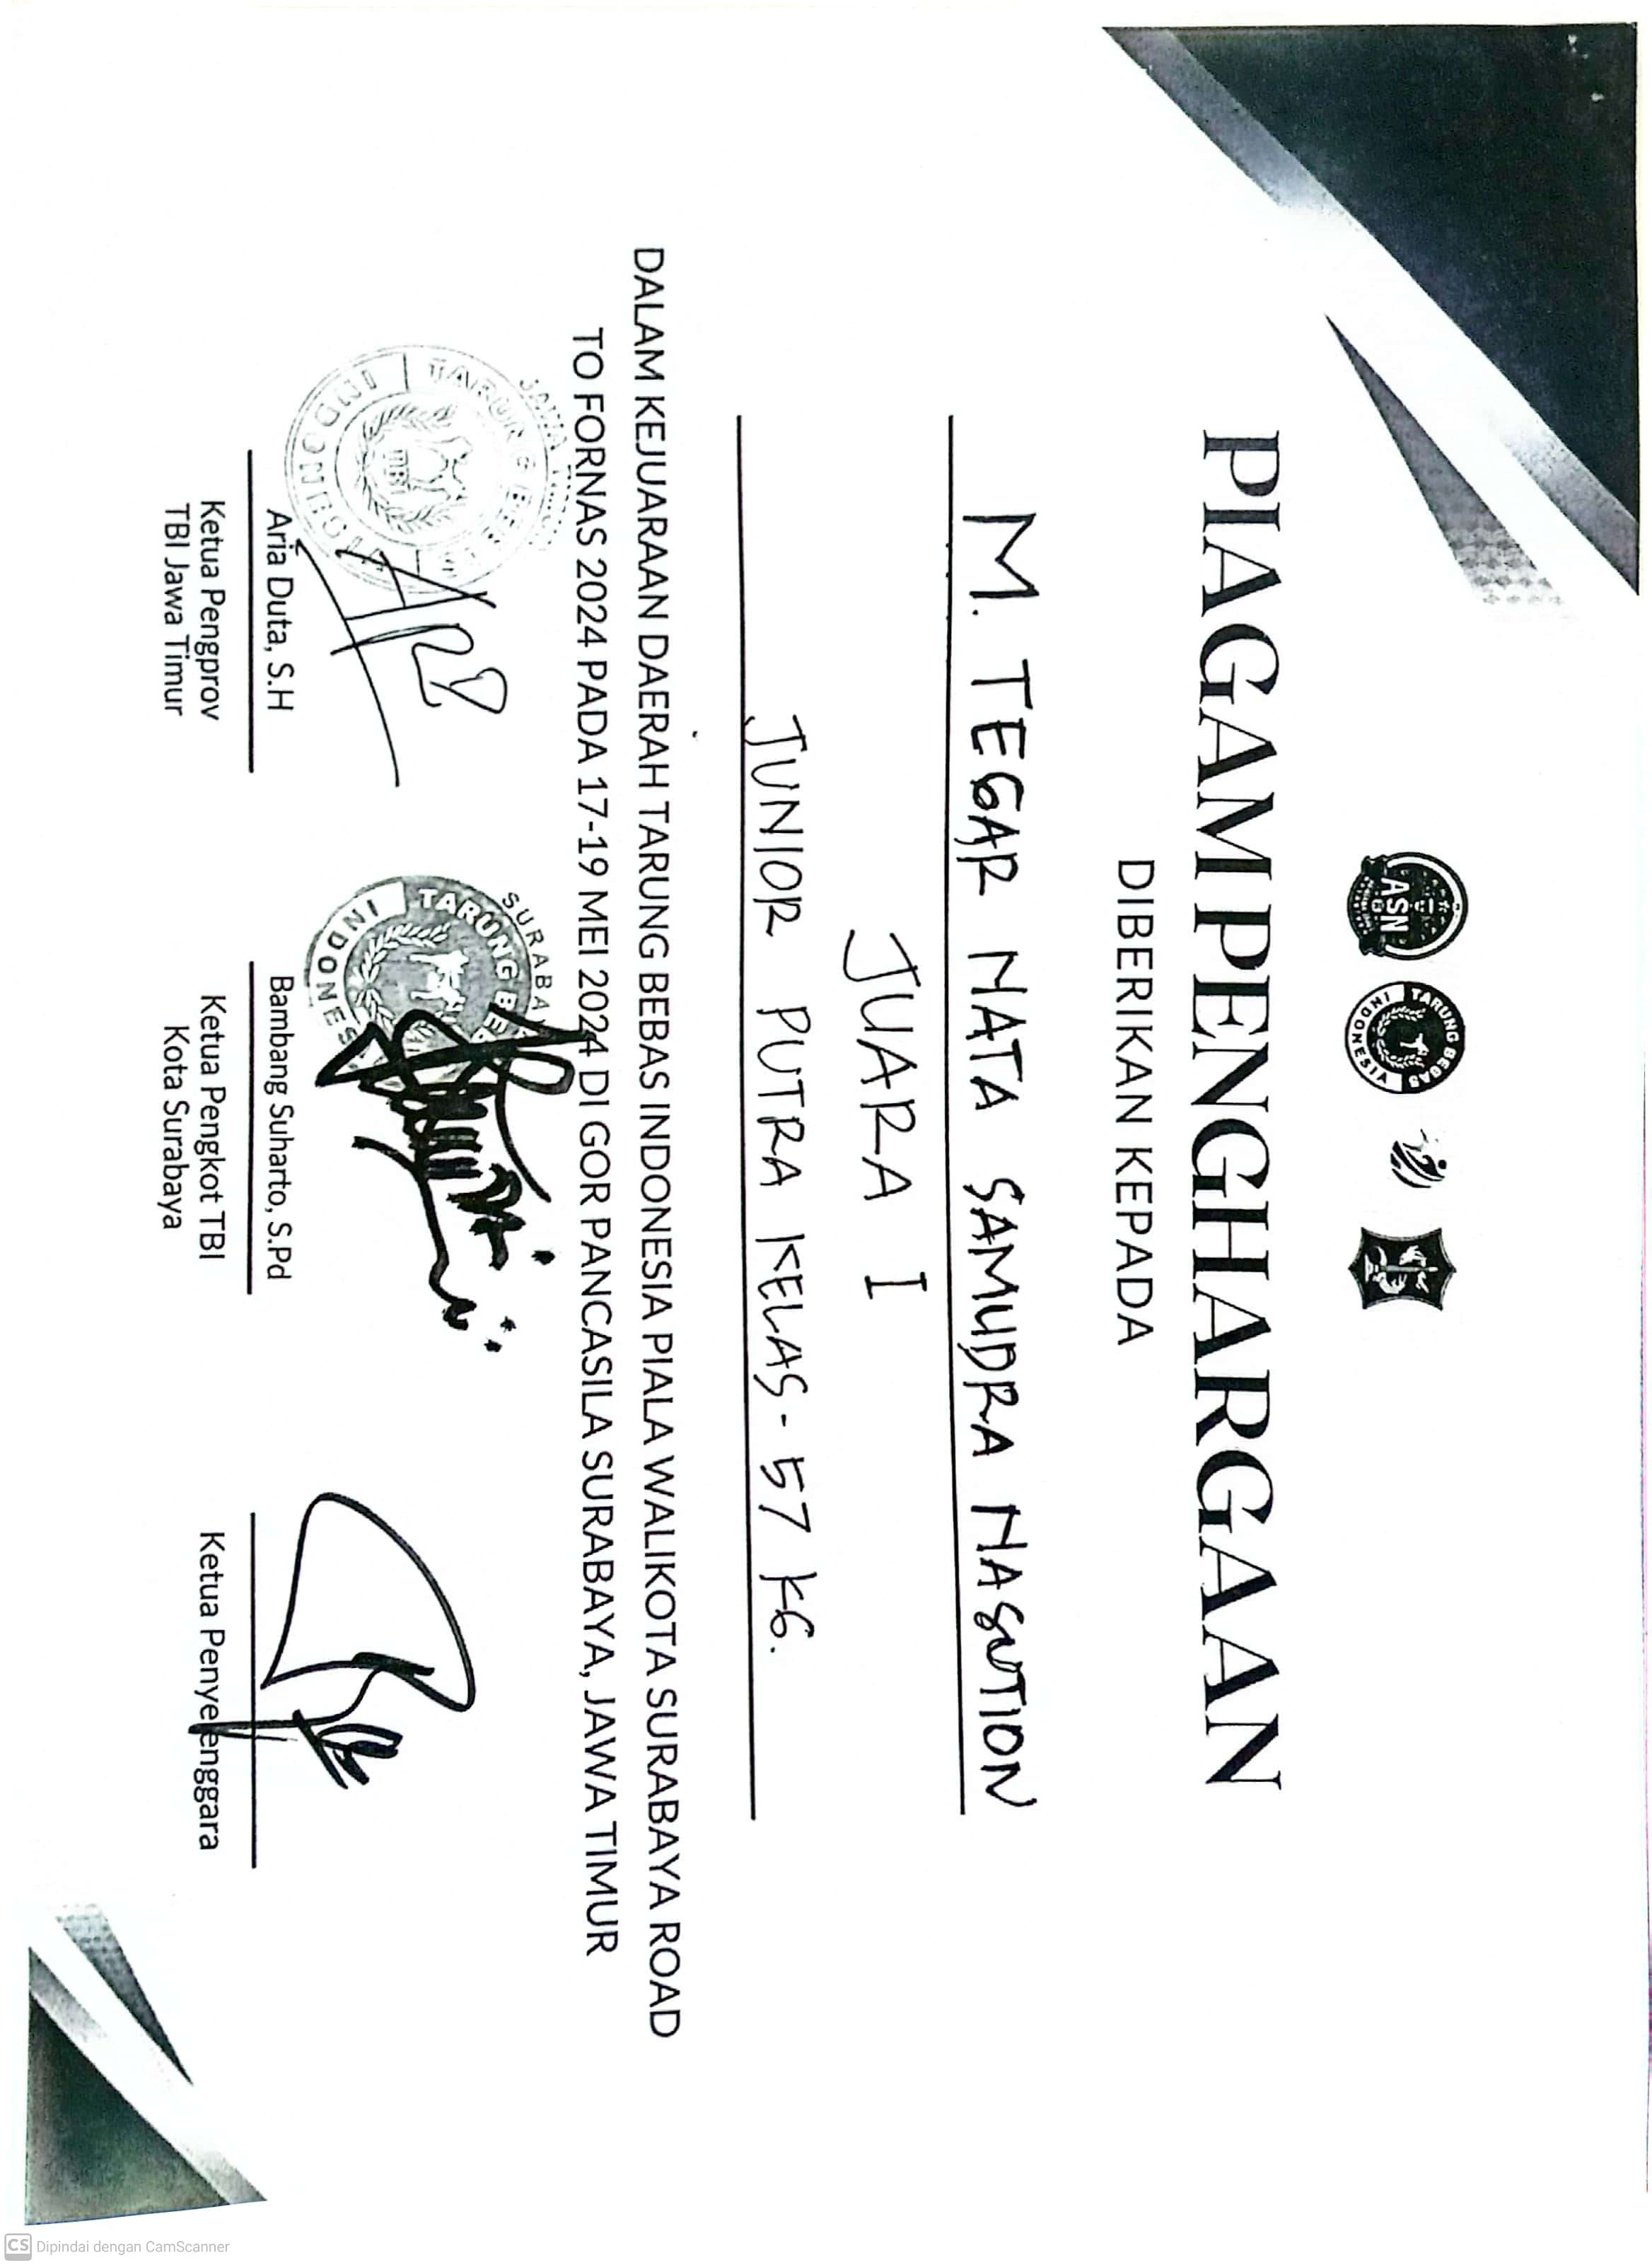 ASN
TARUNG BEBAS
INDONESIA
PIAGAM PENGHARGAAN
DIBERIKAN KEPADA
M. TEGAR NATA SAMUDRA NASUTION
JUARA I
JUNIOR PUTRA KELAS - 57 KG.
DALAM KEJUARAAN DAERAH TARUNG BEBAS INDONESIA PIALA WALIKOTA SURABAYA ROAD
TO FORNAS 2024 PADA 17-19 MEI 2024 DI GOR PANCASILA SURABAYA, JAWA TIMUR
Aria Duta, S.H
Ketua Pengprov
TBI Jawa Timur
Bambang Suharto, S.Pd
Ketua Pengkot TBI
Kota Surabaya
Ketua Penyelenggara
CS Dipindai dengan CamScanner